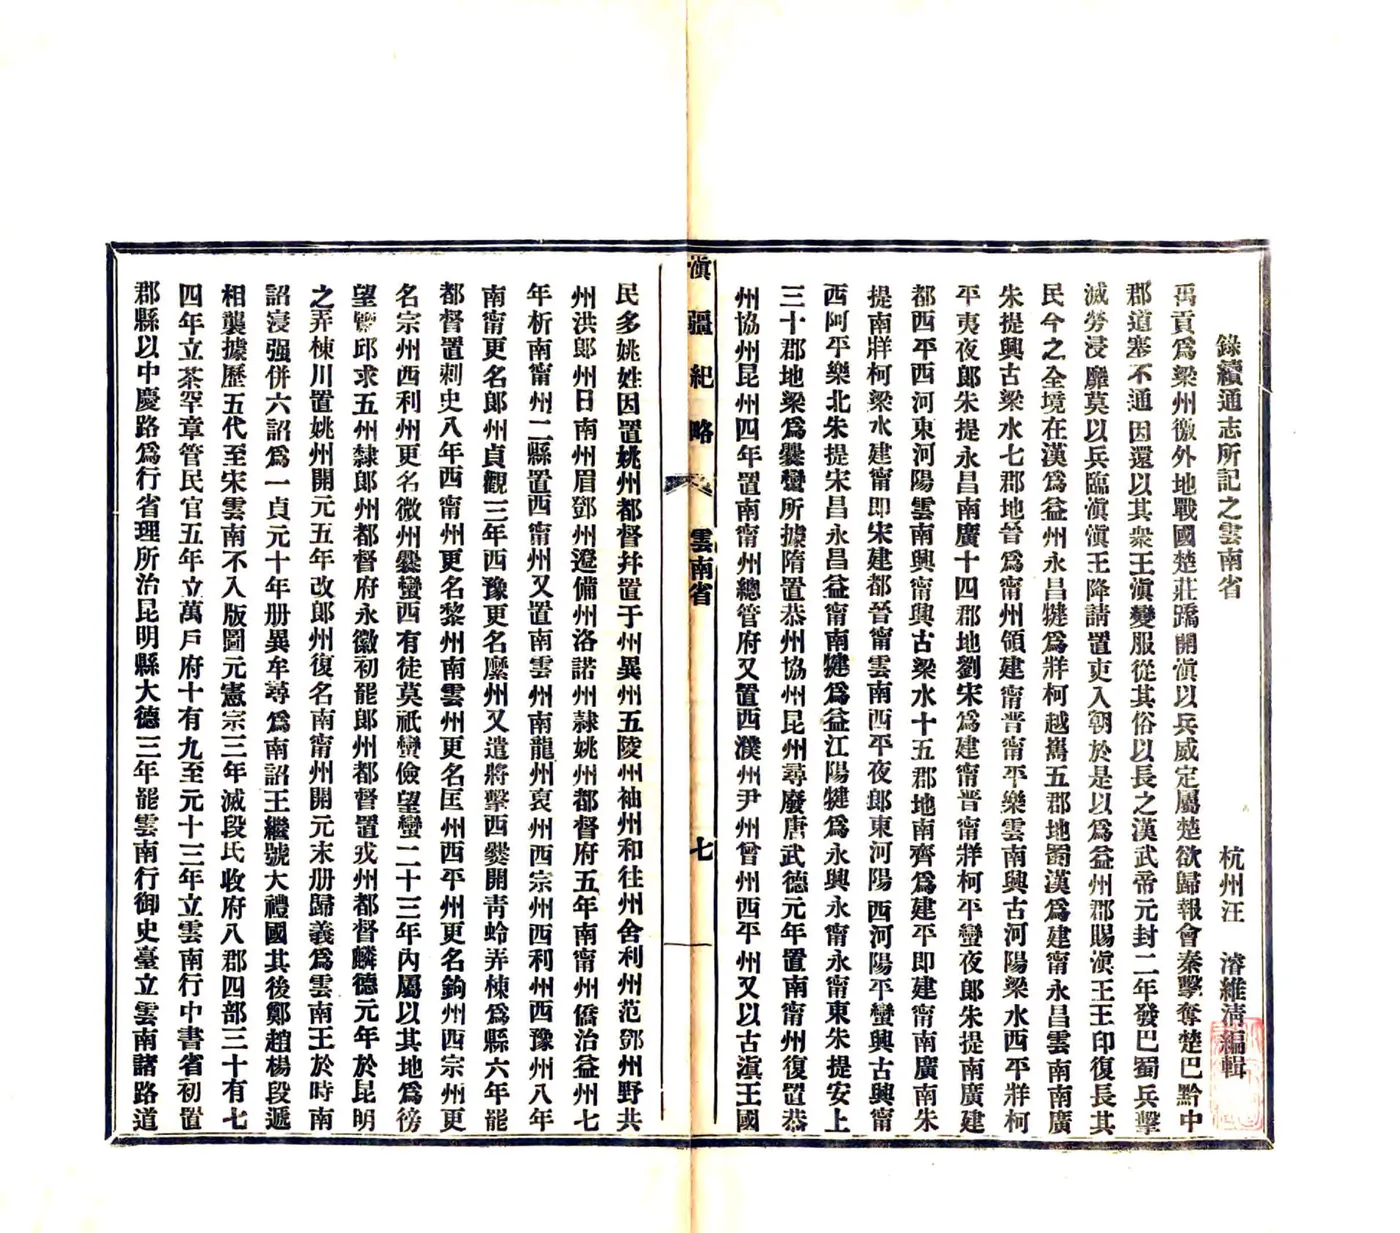 錄續通志所記之雲南省
杭州汪　濬維清編輯
禹貢爲梁州徼外地戰國楚莊蹻開滇以兵威定屬楚欲歸報會秦擊奪楚巴黔中
郡道塞不通因還以其衆王滇變服從其俗以長之漢武帝元封二年發巴蜀兵擊
滅勞浸靡莫以兵臨滇滇王降請置吏入朝於是以爲益州郡賜滇王王印復長其
民今之全境在漢爲益州永昌犍爲牂柯越巂五郡地蜀漢爲建甯永昌雲南南廣
朱提興古梁水七郡地晉爲甯州領建甯晉甯平樂雲南興古河陽梁水西平牂柯
平夷夜郞朱提永昌南廣十四郡地劉宋爲建甯晉甯牂柯平蠻夜郞朱提南廣建
都西平西河東河陽雲南興甯興古梁水十五郡地南齊爲建平即建甯南廣南朱
提南牂柯梁水建甯即宋建都晉甯雲南西平夜郞東河陽西河陽平蠻興古興甯
西阿平樂北朱提宋昌永昌益甯南犍爲益江陽犍爲永興永甯永甯東朱提安上
三十郡地梁爲爨蠻所據隋置恭州協州昆州尋廢唐武德元年置南甯州復置恭
州協州昆州四年置南甯州總管府又置西濮州尹州曾州西平州又以古滇王國
滇疆紀略
雲南省
七
民多姚姓因置姚州都督幷置于州異州五陵州袖州和往州舍利州范鄧州野共
州洪郞州日南州眉鄧州遵備州洛諾州隷姚州都督府五年南甯州僑治益州七
年析南甯州二縣置西甯州又置南雲州南龍州裒州西宗州西利州西豫州八年
南甯更名郞州貞觀三年西豫更名縻州又遣將擊西爨開靑蛉弄棟爲縣六年罷
都督置剌史八年西甯州更名黎州南雲州更名匡州西平州更名鉤州西宗州更
名宗州西利州更名微州爨蠻西有徒莫祇蠻儉望蠻二十三年內屬以其地爲傍
望覽邱求五州隸郞州都督府永徽初罷郞州都督置戎州都督麟德元年於昆明
之弄棟川置姚州開元五年改郞州復名南甯州開元末册歸義爲雲南王於時南
詔浸强併六詔爲一貞元十年册異牟尋爲南詔王繼號大禮國其後鄭趙楊段遞
相襲據歷五代至宋雲南不入版圖元憲宗三年滅段氏收府八郡四部三十有七
四年立茶罕章管民官五年立萬戶府十有九至元十三年立雲南行中書省初置
郡縣以中慶路爲行省理所治昆明縣大德三年罷雲南行御史臺立雲南諸路道